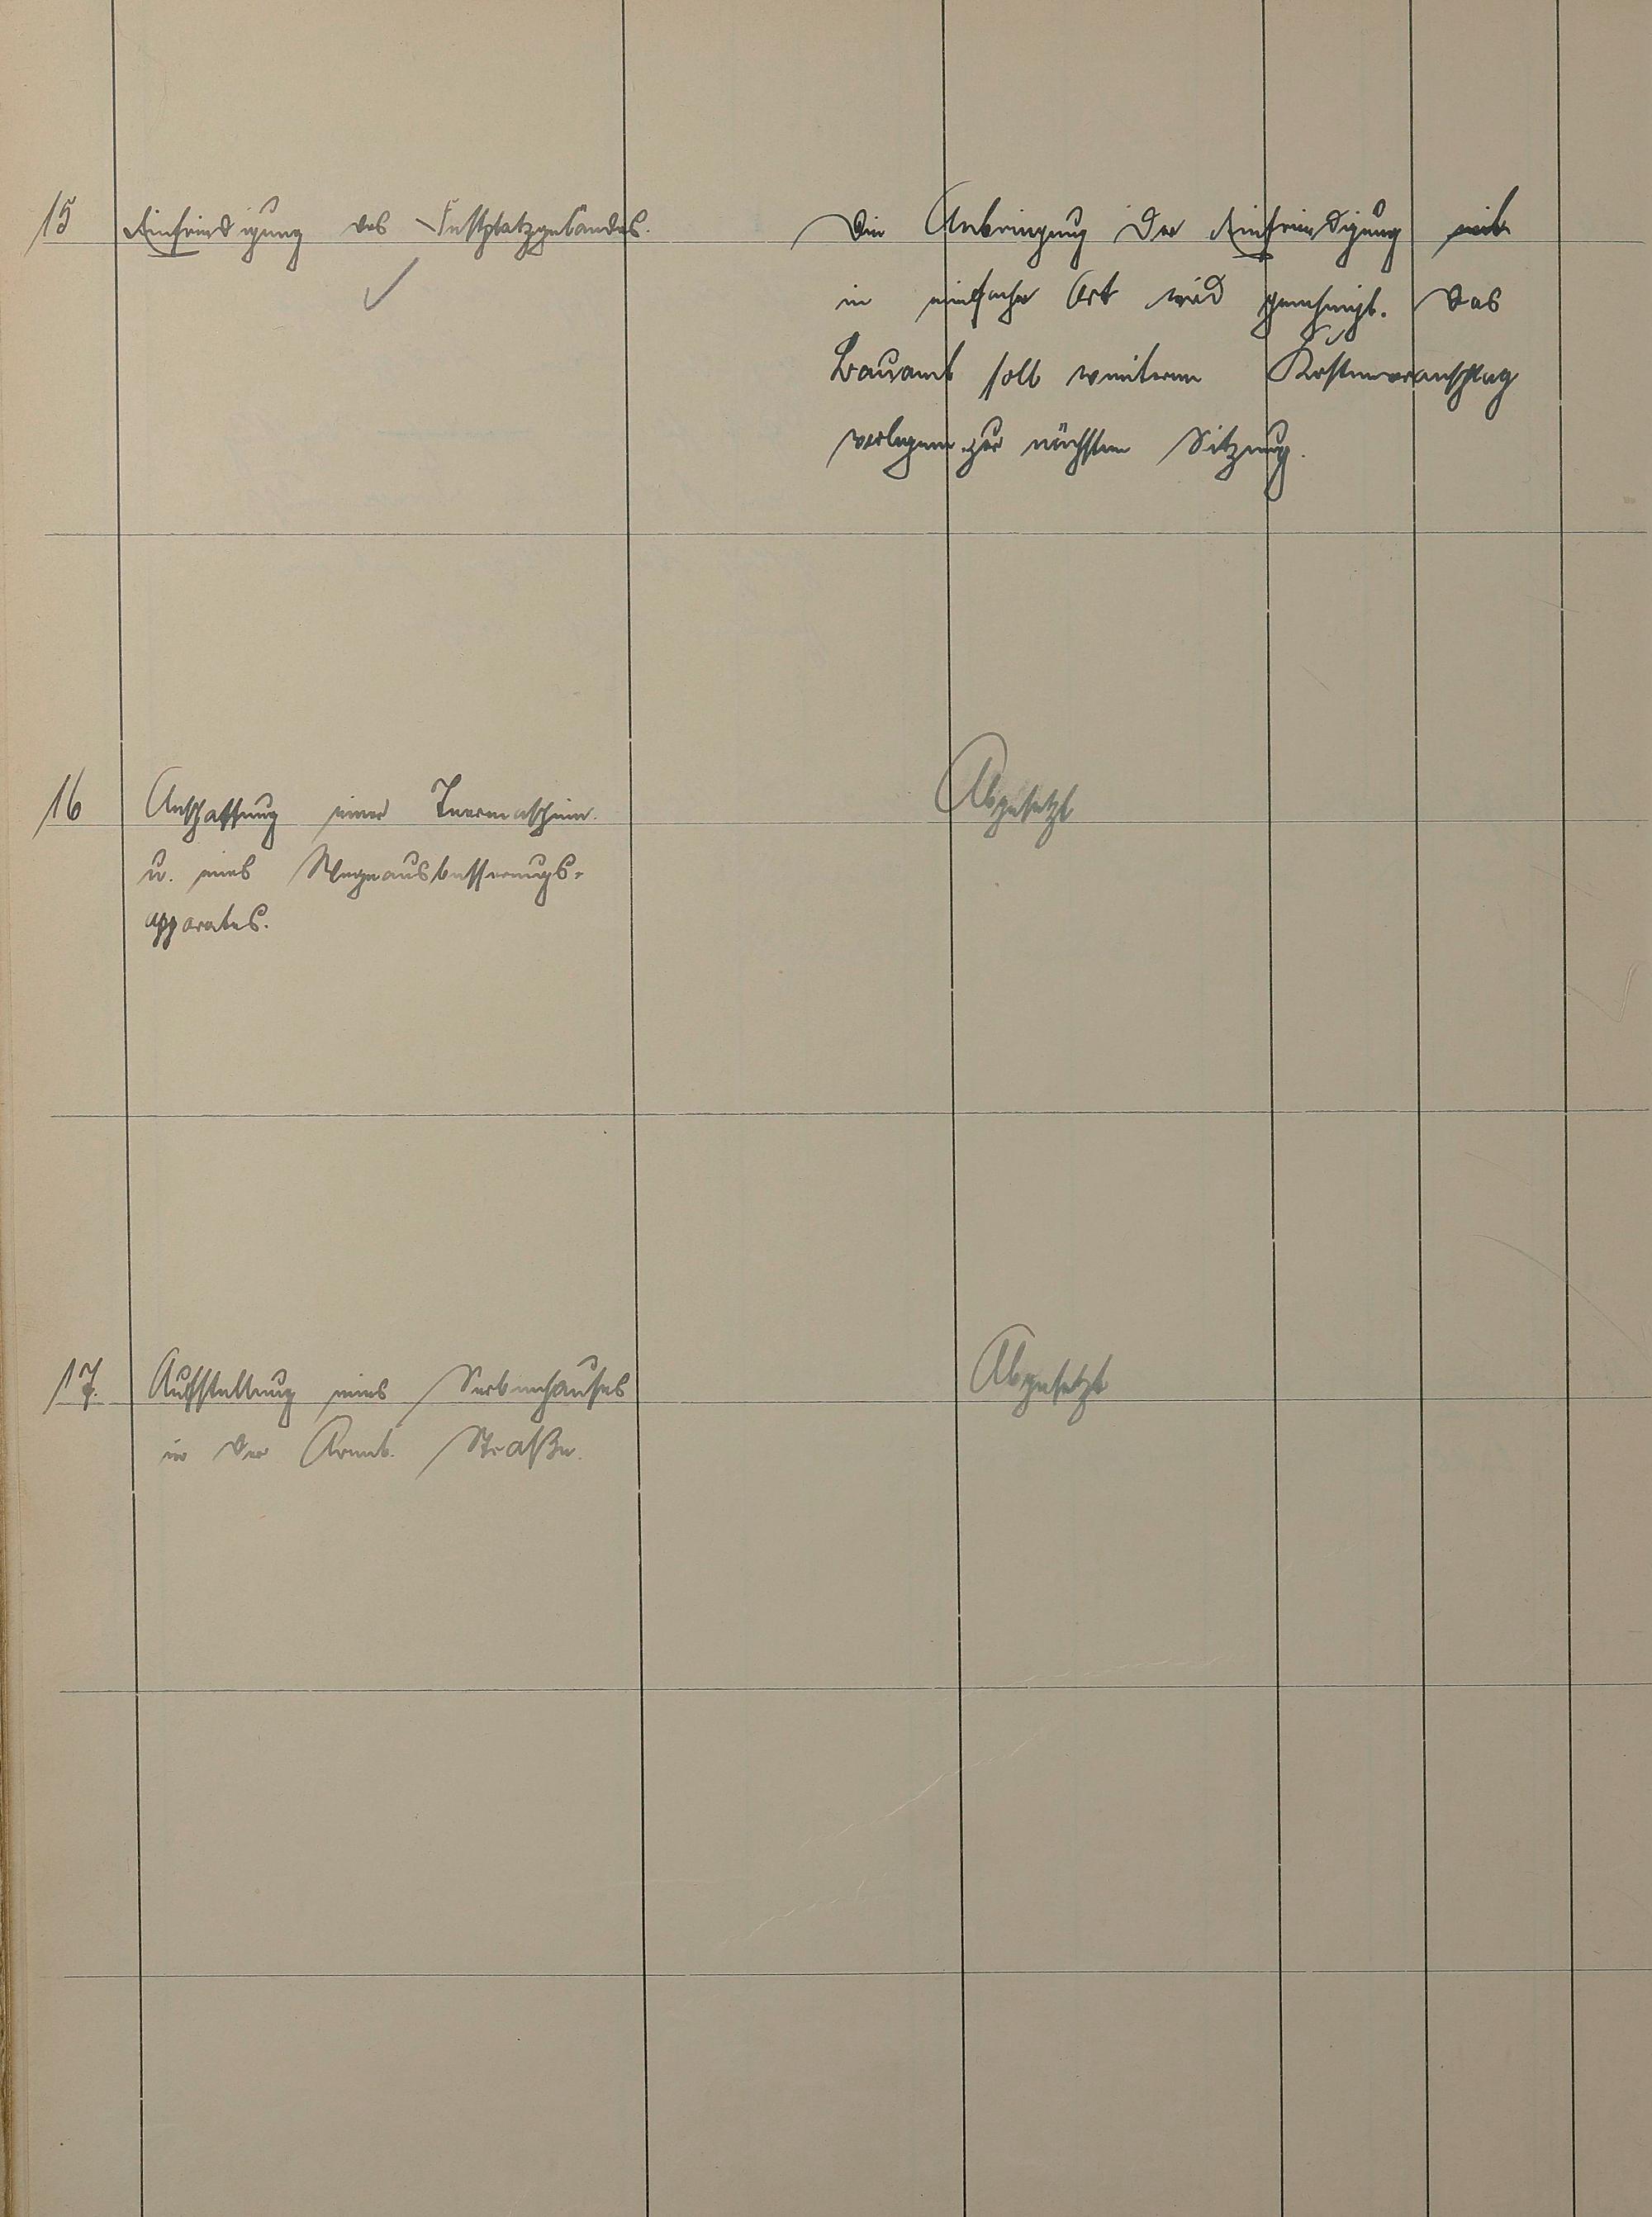 15 Einfriedigung des Festplatzgeländes.
Die Anbringung der Einfriedigung mit
in einfacher Art wird genehmigt. Das
Bauamt soll weiteren Kostenvoranschlag
vorlegen zur nächsten Sitzung.
16 Anschaffung einer Teermaschine Abgesetzt
u. eines Wegeausbesserungs-
apparates.
17. Aufstellung eines Abgesetzt
in der Straße.